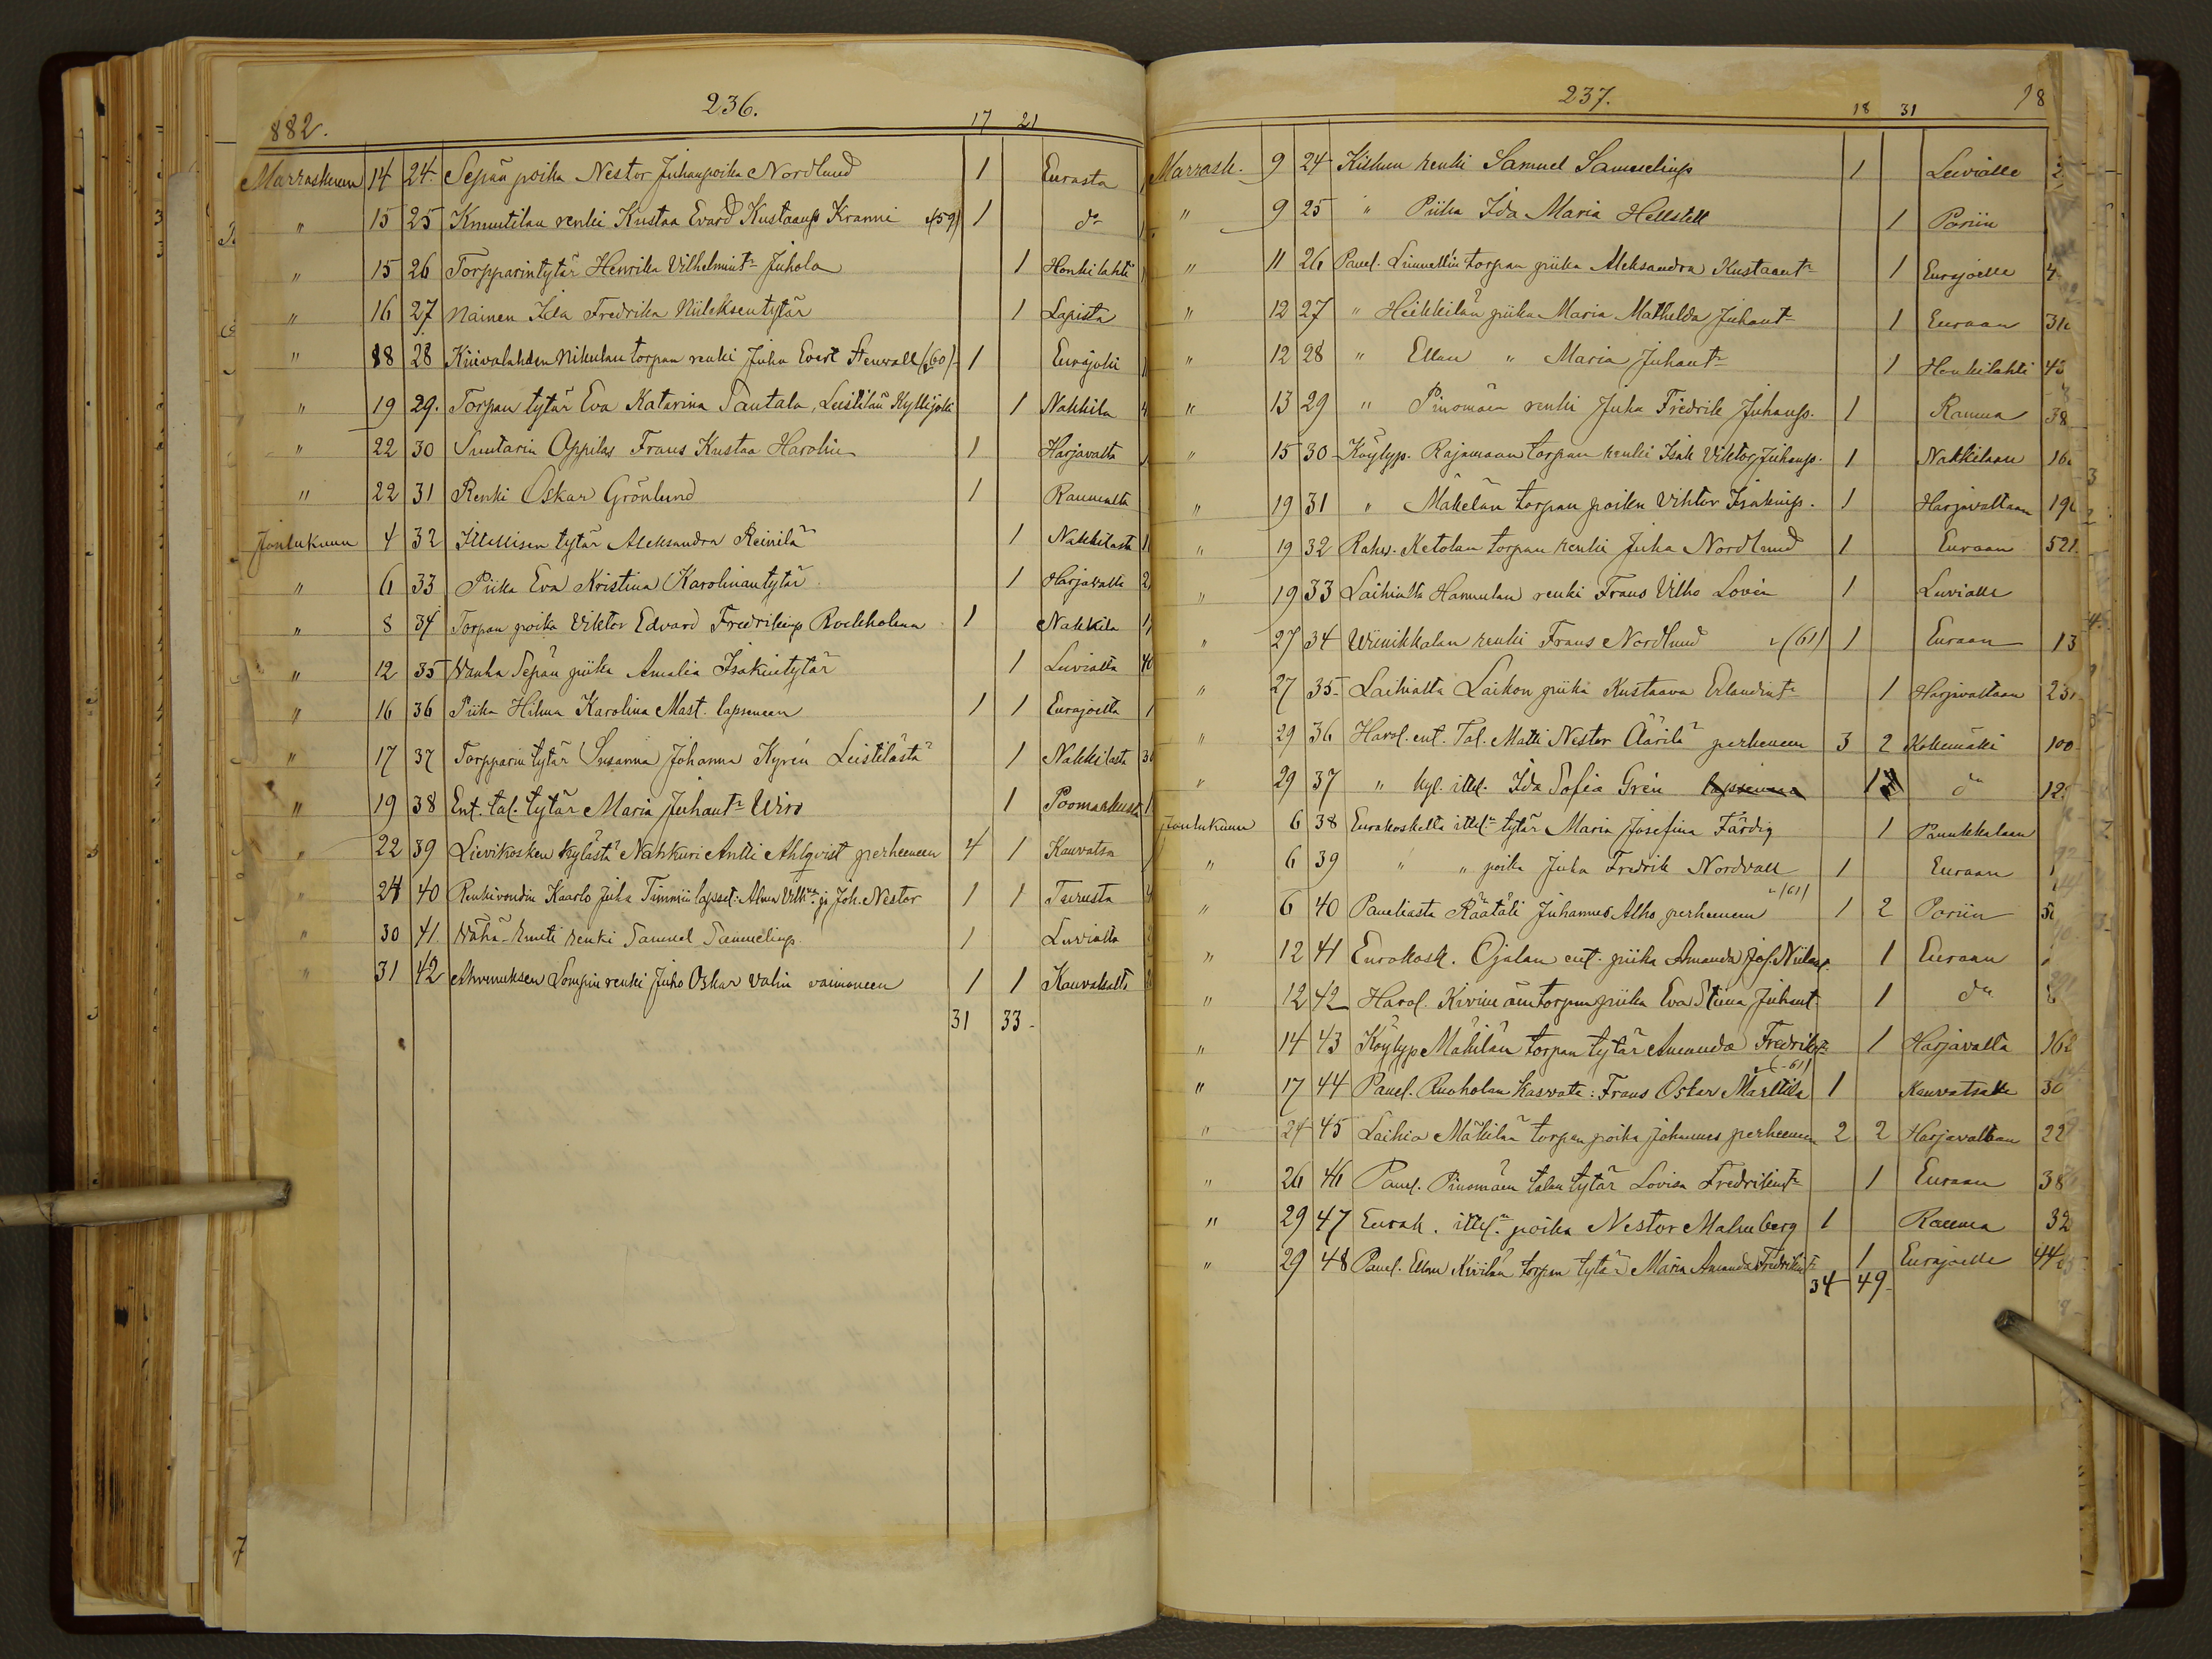 882. 236. 17 21
Marraskuun 14 24. Sepän poika Nestor Juhanpoika Nordlund 1 Eurasta
" 15 25 Knuutilan renki Kustaa Evard Kustaanp. Kranni (59) 1 do
" 15 26 Torpparintytär Henrika Vilhelmint. Juhola 1 Honkilahti
" 16 27 Nainen Ida Fredrika Niileksentytär 1 Lapista
" 18 28 Kiivalahden Nikulan torpan renki Juha Evert Stenvall (60) 1 Eurajoki
" 19 29. Torpan tytär Eva Katarina Santala, Leistilän Kyllijoki 1 Nakkila
" 22 30 Suutarin Oppilas Frans Kustaa Harolin 1 Harjavalta
" 22 31 Renki Oskar Grönlund 1 Raumalta
Joulukuun 4 32 Itsellisen tytär Aleksandra Reinilä 1 Nakkilasta
" 6 33 Piika Eva Kristina Karolinantytär 1 Harjavalta
" 8 34 Torpan poika Viktor Edvard Fredrikinp. Rockholma 1 Nakkila
" 12 35 Wanha Sepän piika Amalia Isakintytär 1 Luvialta
" 16 36 Piika Hilma Karolina Mast. lapseneen 1 1 Eurajoelta
" 17 37 Torpparin tytär Susanna Johanna Kyrén Leistilästä 1 Nakkilasta
" 19 38 Ent. tal. tytär Maria Juhant. Wiro 1 Poomarkusta
" 22 39 Lievikosken kylästä Nahkuri Antti Ahlqvist perheeneen 4 1 Kauvatsa
" 24 40 Renkivoudin Kaarlo Juha Timmin lapset: Alma Vilh. ja Joh. Nestor 1 1 Turusta
" 30 41. Wähä-Emeti renki Samuel Samuelinp. 1 Luvialta
" 31 42 Ahvenuksen Sompin renki Juho Oskar Valin vaimoneen 1 1 Kauvatsalta
31 33
237. 18 31 18
Marrask. 9 24 Kiskun renki Samuel Samuelinp. 1 Luvialle 2
" 9 25 " Piika Ida Maria Hellstell 1 Poriin
" 11 26 Panel. Linnellin torpan piika Aleksandra Kustaant. 1 Eurajoelle 4
" 12 27 " Heikkilän piika Maria Mathilda Juhant. 1 Euraan 31
" 12 28 " Ellan " Maria Juhant. 1 Honkilahti 43
" 13 29 " Pinomäen renki Juha Fredrik Juhanp. 1 Rauma 38
" 15 30 Köylyp. Rajamaan torpan renki Isak Viktor Juhanp. 1 Nakkilaan 16
" 19 31 " Mäkelän torpan poika Viktor Isakinp. 1 Harjavaltaan 19
" 19 32 Rahv. Ketolan torpan renki Juha Nordlund 1 Euraan 521.
" 19 33 Laihialta Hannulan renki Frans Vilho Lovén 1 Luvialle
" 27 34 Wiinikkalan renki Frans Nordlund (61) 1 Euraan 13
" 27 35 Laihialta Laikon piika Kustaava Erlandint. 1 Harjavaltaan 23
" 29 36 Harol. ent. Tal. Matti Nestor Äärilä perheneen 3 2 Kokemäki 100
" 29 37 " kyl. itsel. Ida Sofia Grén lapsineen 1 do 12
Joulukuun 6 38 Eurakoskelta itsel. tytär Maria Josefina Färdig 1 Punukkalaan
" 6 39 " " poika Juha Fredrik Nordvall 1 Euraan
" 6 40 Paneliasta Räätäli Juhannes Alho perheneen (61) 1 2 Poriin
" 12 41 Eurakosk. Ojalan ent. piika Amanda Jos. Niilent. 1 Euraan
" 12 42 Harol. Kivimäen torpan piika Eva Stiina Juhant. 1 do
" 14 43 Köylyp Mäkilän torpan tytär Amanda Fredrikint. 1 Harjavalta 162
" 17 44 Panel. Ruoholan Kasvata: Frans Oskar Marttila (61) 1 Kauvatsalle 30
" 24 45 Laihia Mäkilän torpan poika Johannes perheneen 2 2 Harjavaltaan 22
" 26 46 Panel. Pinomäen talon tytär Lovisa Fredrikint. 1 Euraan 38
" 29 47 Eurak. itsel. poika Nestor Malmberg 1 Rauma 32
" 29 48 Panel. Ellan Kivilän torpan tytär Maria Amanda Fredrikint. 1 Eurajoelle 44
34 49